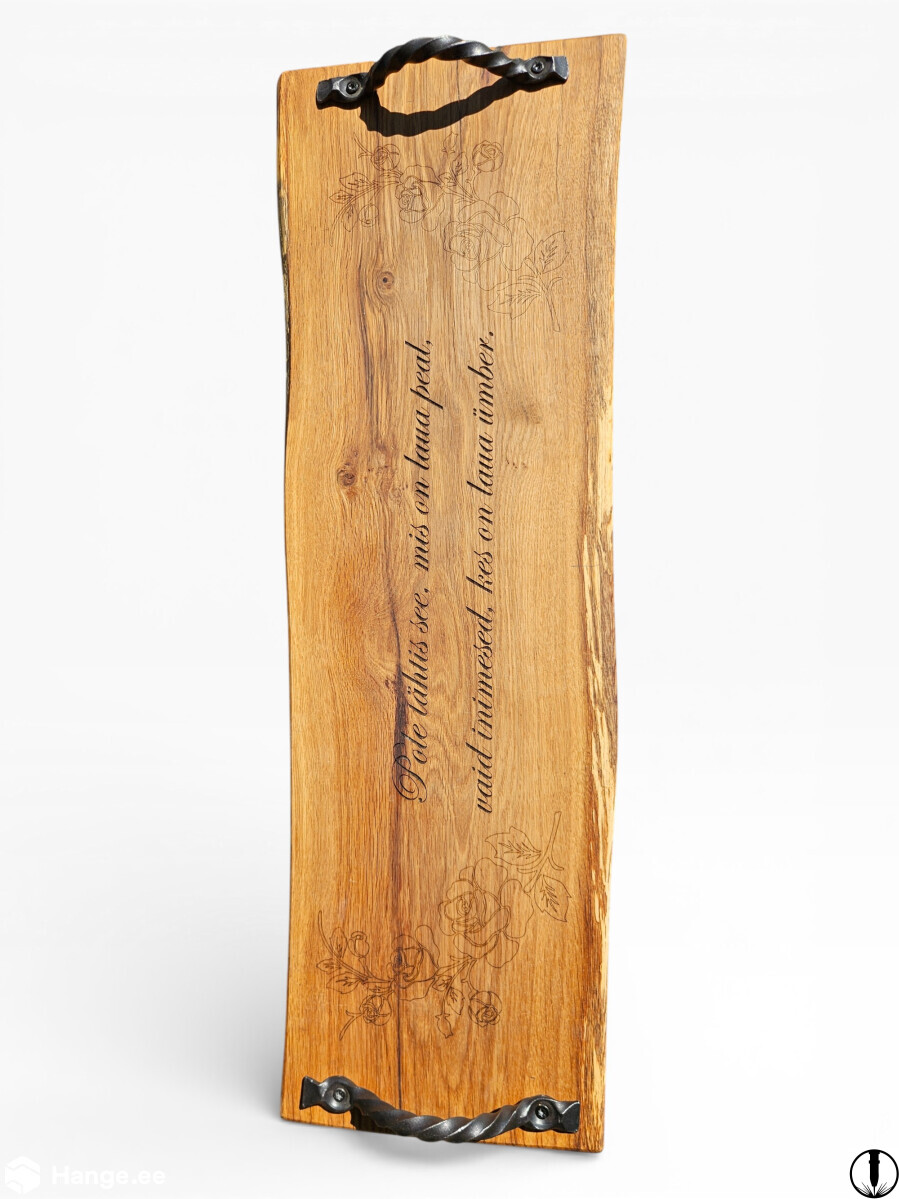 Pole tähtis see, mis on laua peal,
vaid inimesed, kes on laua ümber.
Hange.ee